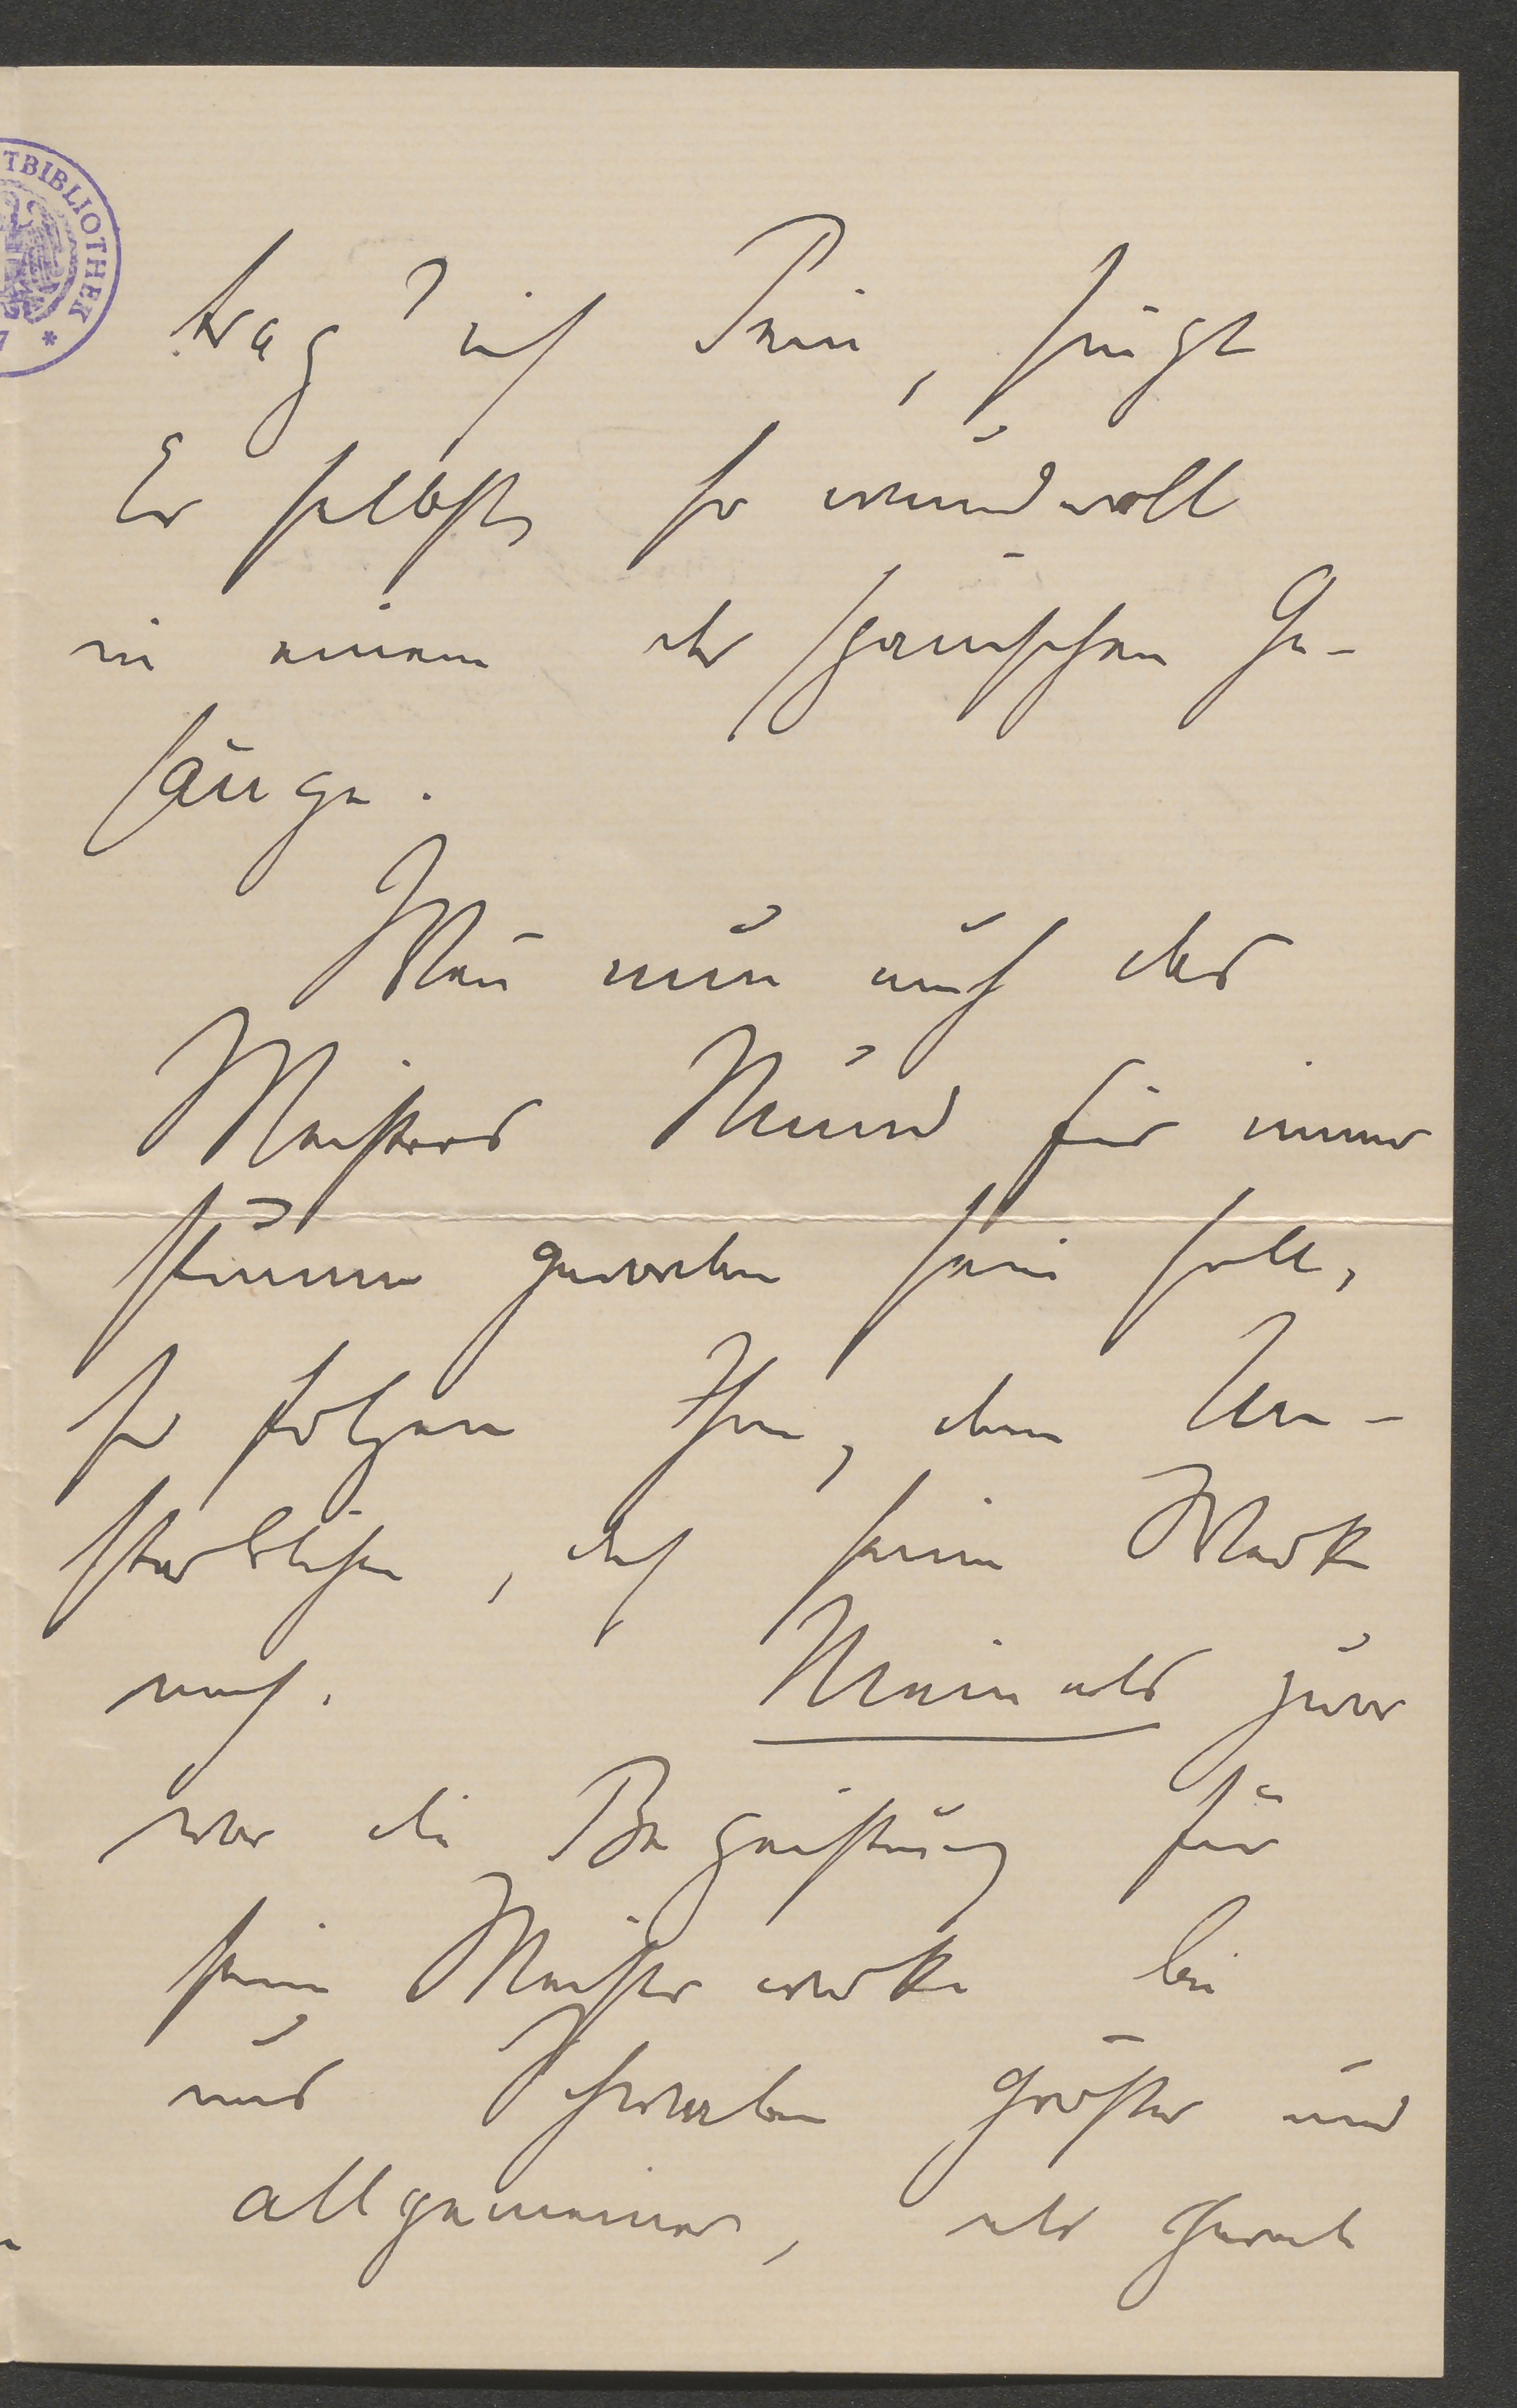 TBIBLIOTHEK
7 *
trag' ich Pein, singt
Er selbst, so wundervoll
in einem der Spanischen Ge-
sänge.
Wenn nun auch des
Meisters Mund für immer
stumm geworden sein soll,
so folgen Ihm, dem Un-
sterblichen, doch seine Werke
nach. Niemals zuvor
war die Begeisterung für
seine Meisterwerke bei
uns Schwaben größer und
allgemeiner, als gerade